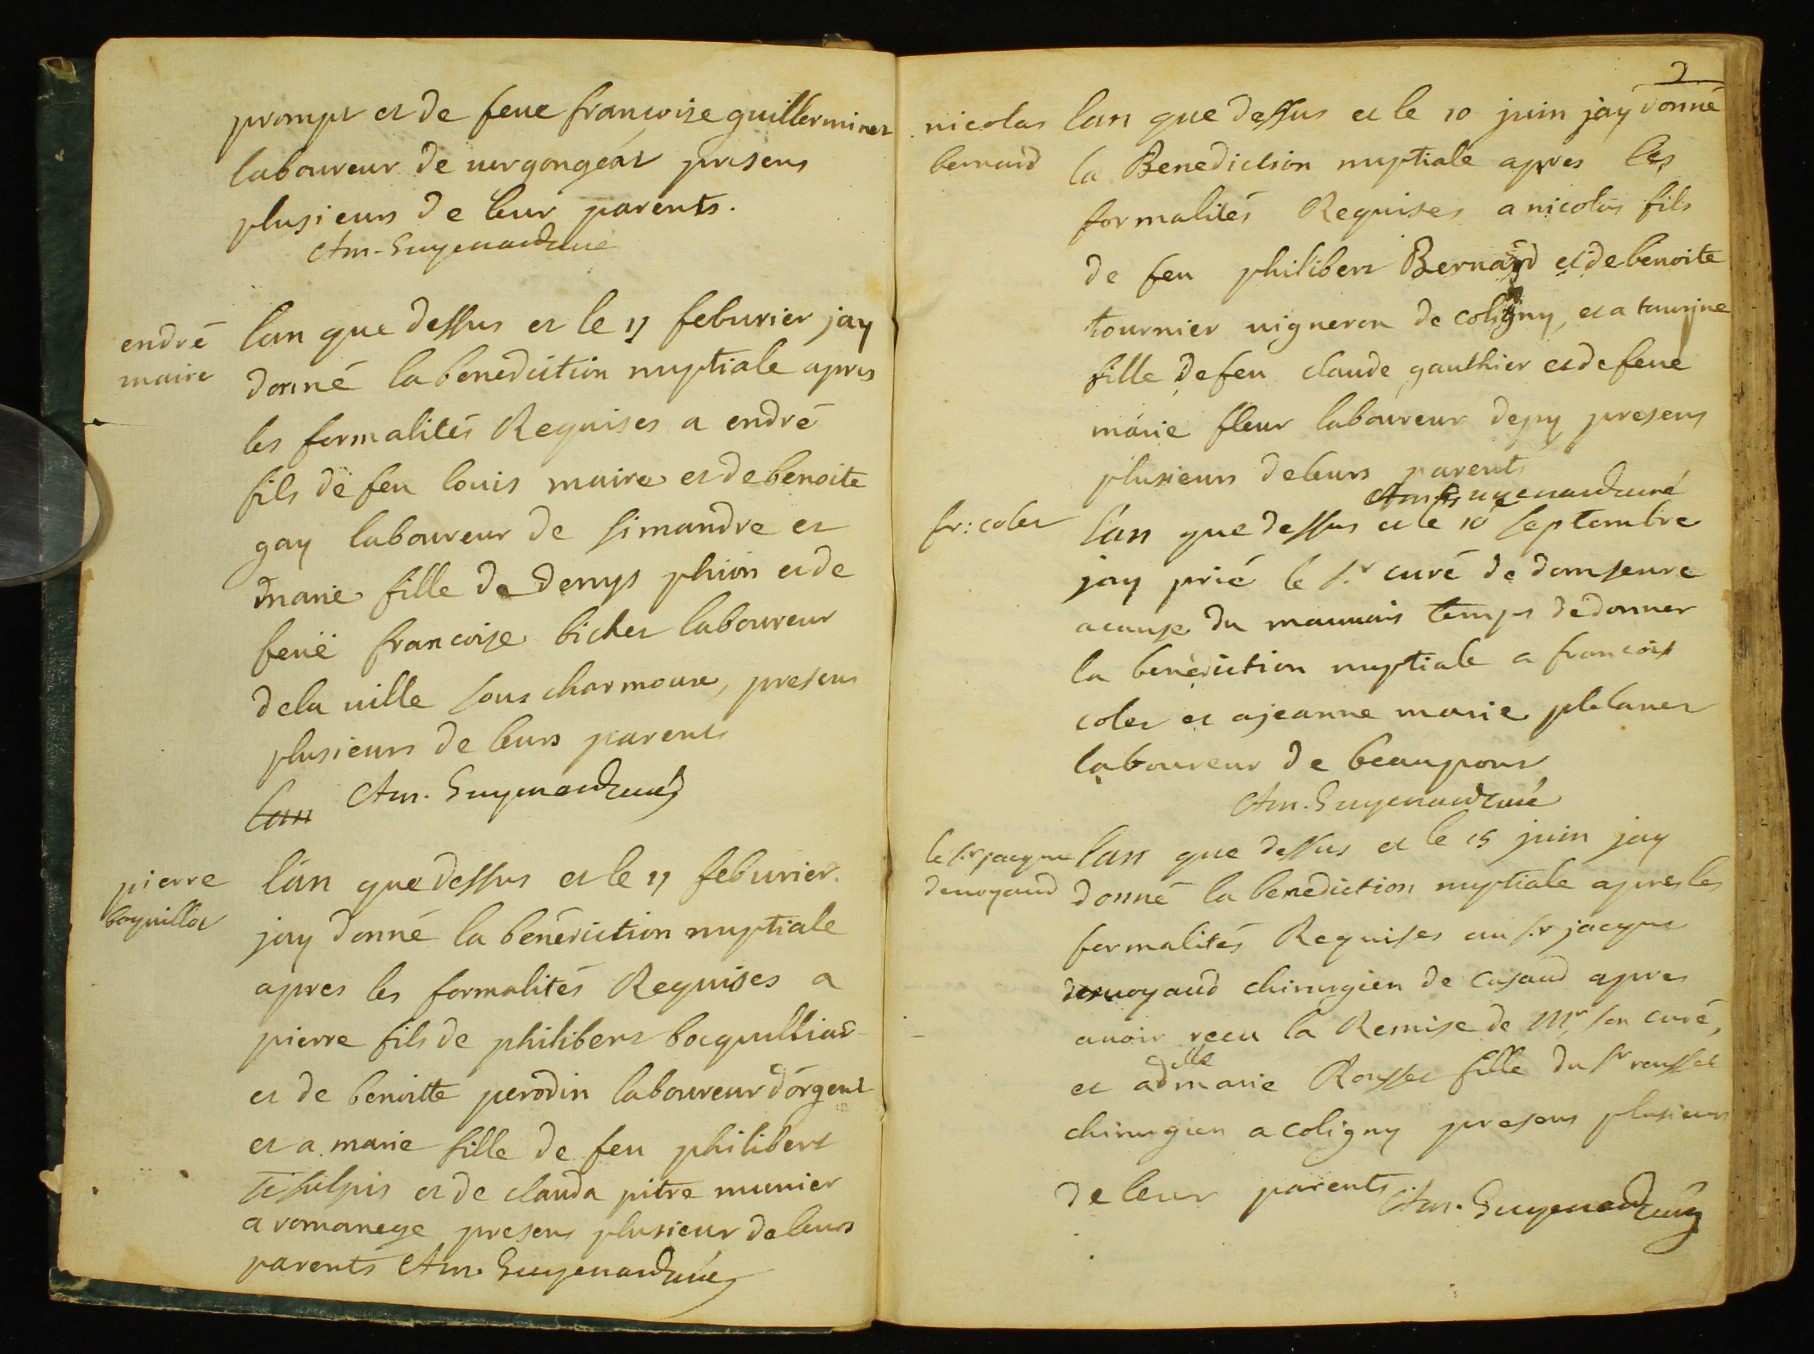 prompt et de feue francoise guillerminet
laboureur de vergongeat presens
plusieurs de leur parents.
Am. Guyenardcuré
endré
maire
lan que dessus et le 11 feburier jay
donné la benediction nuptiale apres
les formalités Requises a endré
fils de feu louis maire et de benoite
gay laboureur de simandre et
marie fille de denys phion et de
feuë francoise bichet laboureur
dela ville sous charmoux, presens
plusieurs de leurs parents
lan Am. Guyenardcuré
pierre
boquillot
l'an que dessus et le 11 feburier.
jay donné la benediction nuptiale
apres les formalités Requises a
pierre fils de philibert bocquilliad
et de benoitte perodin laboureur d'orgent
et a marie fille de feu philibert
et de clauda pitre munier
a romanege presens plusieur de leurs
parents Am. Guyenardcuré
2
nicolas
bernard
lan que dessus et le 10 juin jay donné
la Benediction nuptiale apres les
formalités Requises a nicolas fils
de feu philibert Bernard et de benoite
tournier vigneron de coligny, et a taurine
fille de feu claude gauthier et de feue
marie fleur laboureur depy presens
plusieurs deleurs parents
Am Guyenardcuré
fr: colet
l'an que dessus et le 10 septembre
jay prié le s.r curé de domseure
acause du mauvais temps de donner
la benediction nuptiale a francois
colet et a jeanne marie platanet
laboureur de beaupont
Am. Guyenardcuré
le s.r jacque
denoyaud
lan que dessus et le 15 juin jay
donné la benediction nuptiale apres les
formalités Requises au s.r jacque
denoyaud chirurgien de cusaud apres
avoir recu la Remise de Mr son curé,
et a dlle marie Rousset fille du sr rousset
chirurgien a coligny presens plusieurs
de leur parents. Am. Guyenardcuré